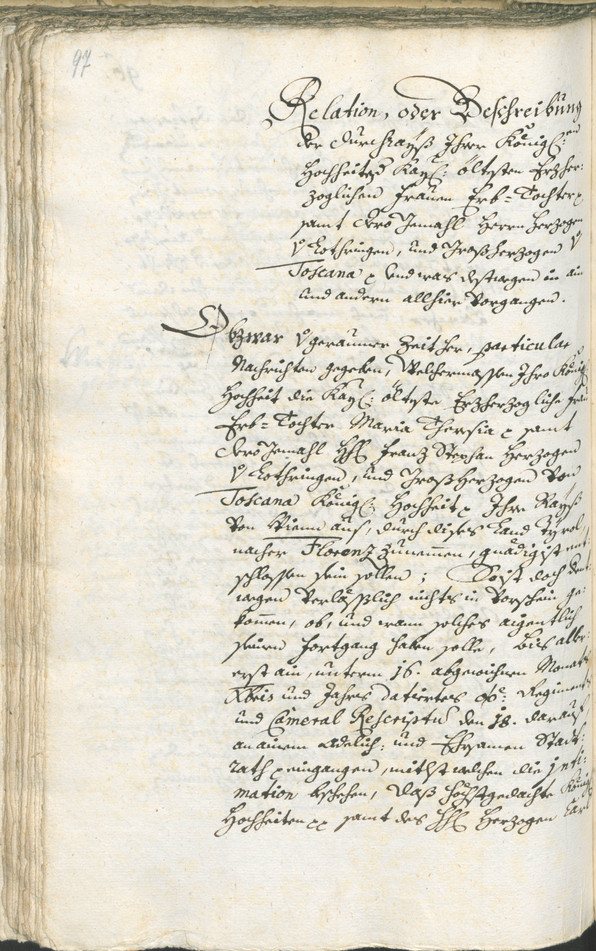 97
Relation, oder Beschreibung
der durchrayß Ihrer Königl:en
Hochheiten Kay: Eltesten Erzher:
zoglichen Frauen Erb=Tochter
samt dero Gemahl Herrn Herzogen
V Lothringen, und Großherzogen V
Toscana p und was destwegen in ain
und andern allhier vorgangen.
Obzwar V geraumer Zeit her, particular
Nachrichten gegeben, Welchermassen Ihro König
Hochheit die Kay: Elteste Erzherzogliche Frau
Erb=Tochter Maria Theresia p samt
dero Gemahl HH Franz Stephan Herzogen
V Lothringen, und Großherzogen von
Toscana Königl: Hochheit p Ihre Rayß
von Wienn aus, durch dises Land Tyrol,
nacher Florenz zunemmen, gnädigist ent:
schlossen sein sollen; So ist doch dest
wegen verläßlich nichts in Vorschein ge:
kommen, ob, und wann solches aigentlich
seinen fortgang haben solle, bis aller:
erst ain, unterm 16. abgewichnen Monats
Xbris und Jahrs datiertes Regiments
und Cameral Rescriptum den 18. darauf
an ainem Adelich: und Ehrsamen Statt:
rath eingangen, mithst welchen die inti:
mation beschehen, daß höchstgedachte König
Hochheiten pp samt des HH Herzogen Carl